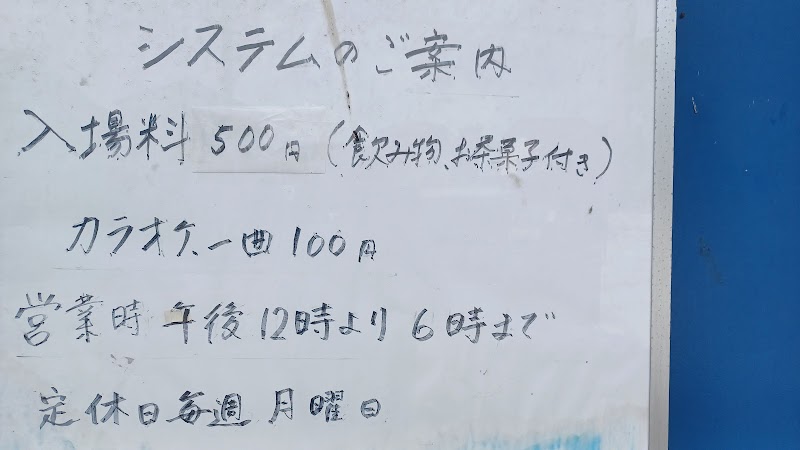 システムのご案内
入場料 500円 (飲み物、お茶菓子付き)
カラオケ、一曲 100円
営業時 午後 12時より 6時まで
定休日毎週 月曜日